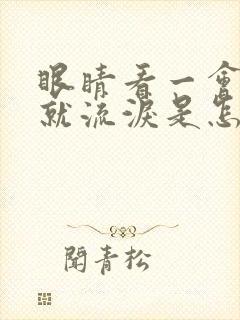 眼睛看一會
就流淚是怎
閒青松